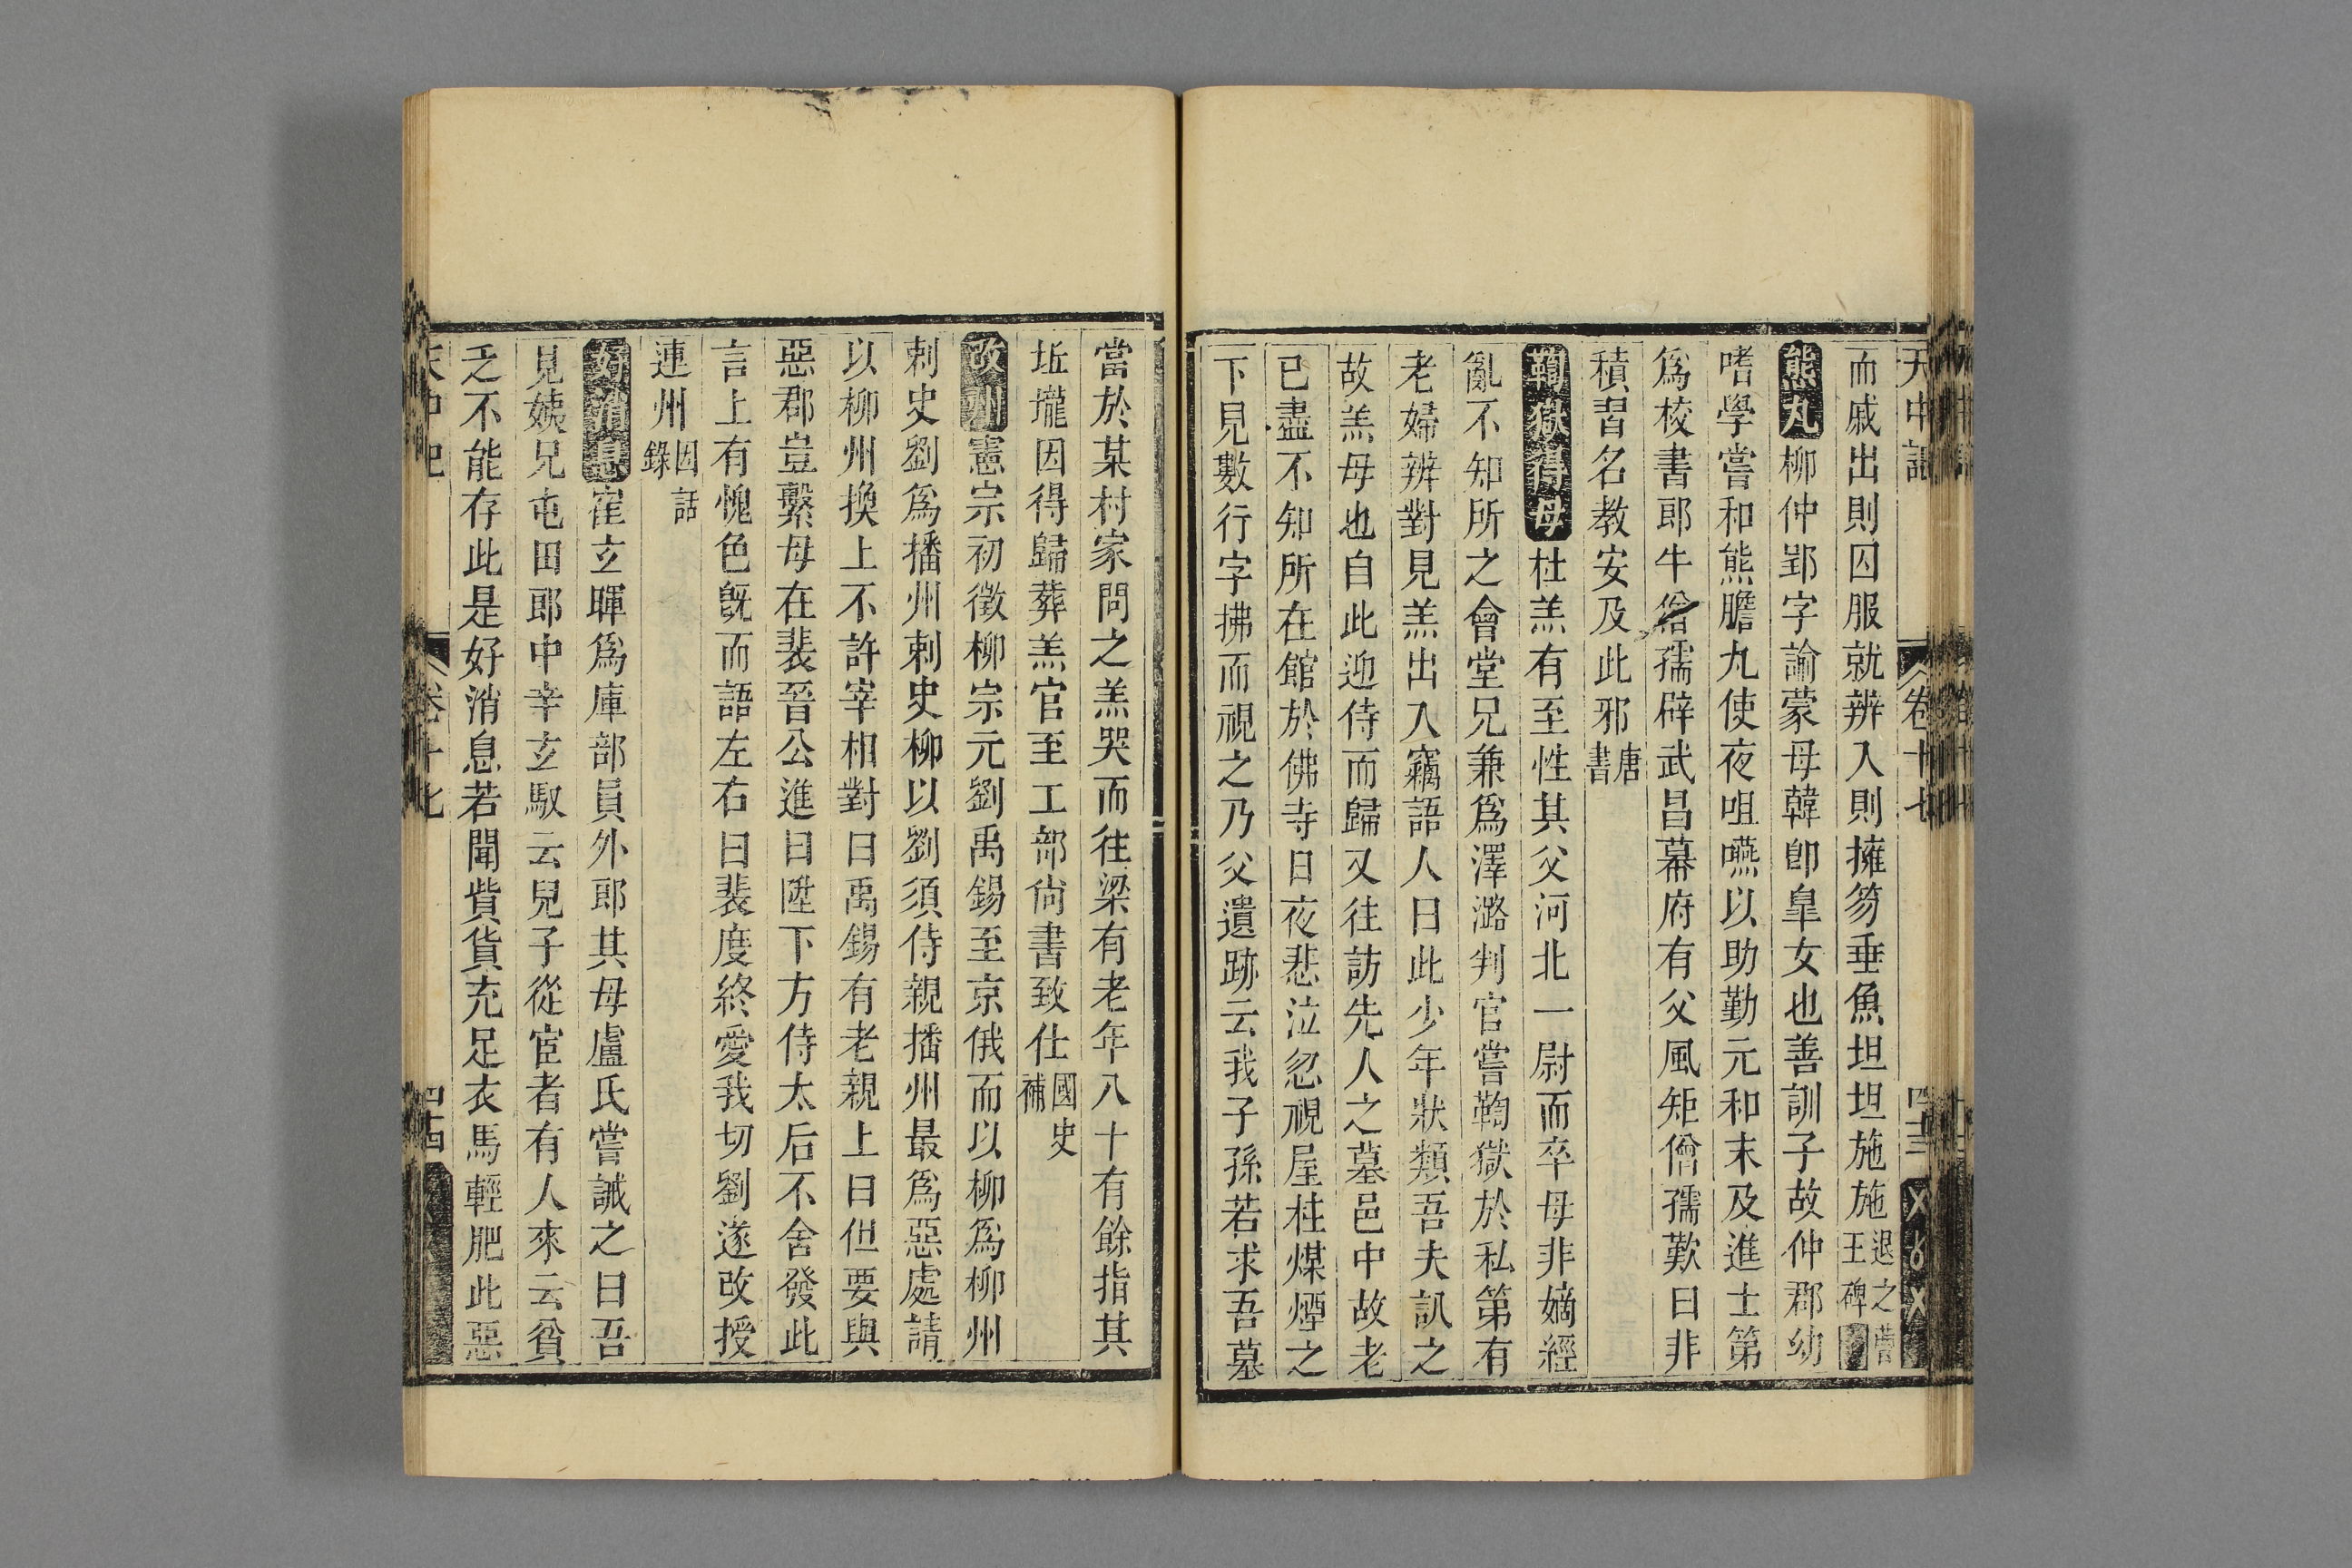 天中記 卷十七 四十三
而戚出則囚服就辨入則擁笏垂魚坦坦施施退之曹王碑
熊丸柳仲郢字諭蒙母韓卽皐女也善訓子故仲郡幼
嗜學嘗和熊膽丸使夜咀嚥以助勤元和末及進士第
爲校書郎牛僧孺辟武昌幕府有父風矩僧孺歎曰非
積習名教安及此邪唐書
鞫獄得母杜羔有至性其父河北一尉而卒母非嫡經
亂不知所之會堂兄兼爲澤潞判官嘗鞫獄於私第有
老婦辨對見羔出入竊語人曰此少年狀類吾夫訊之
故羔母也自此迎侍而歸又往訪先人之墓邑中故老
已盡不知所在館於佛寺日夜悲泣忽視屋柱煤煙之
下見數行字拂而視之乃父遺跡云我子孫若求吾墓
當於某村家問之羔哭而往梁有老年八十有餘指其
坵壠因得歸葬羔官至工部尙書致仕國史補
改州憲宗初徵柳宗元劉禹錫至京俄而以柳爲柳州
刺史劉爲播州刺史柳以劉須侍親播州最爲惡處請
以柳州換上不許宰相對曰禹錫有老親上曰但要與
惡郡豈繫母在裴晉公進曰陛下方侍太后不合發此
言上有愧色旣而語左右曰裴度終愛我切劉遂改授
連州因話錄
好消息崔玄暉爲庫部員外郎其母盧氏嘗誡之曰吾
見姨兄屯田郎中辛玄馭云兒子從宦者有人來云貧
乏不能存此是好消息若聞貲貨充足衣馬輕肥此惡
天中記 卷十七 四十四